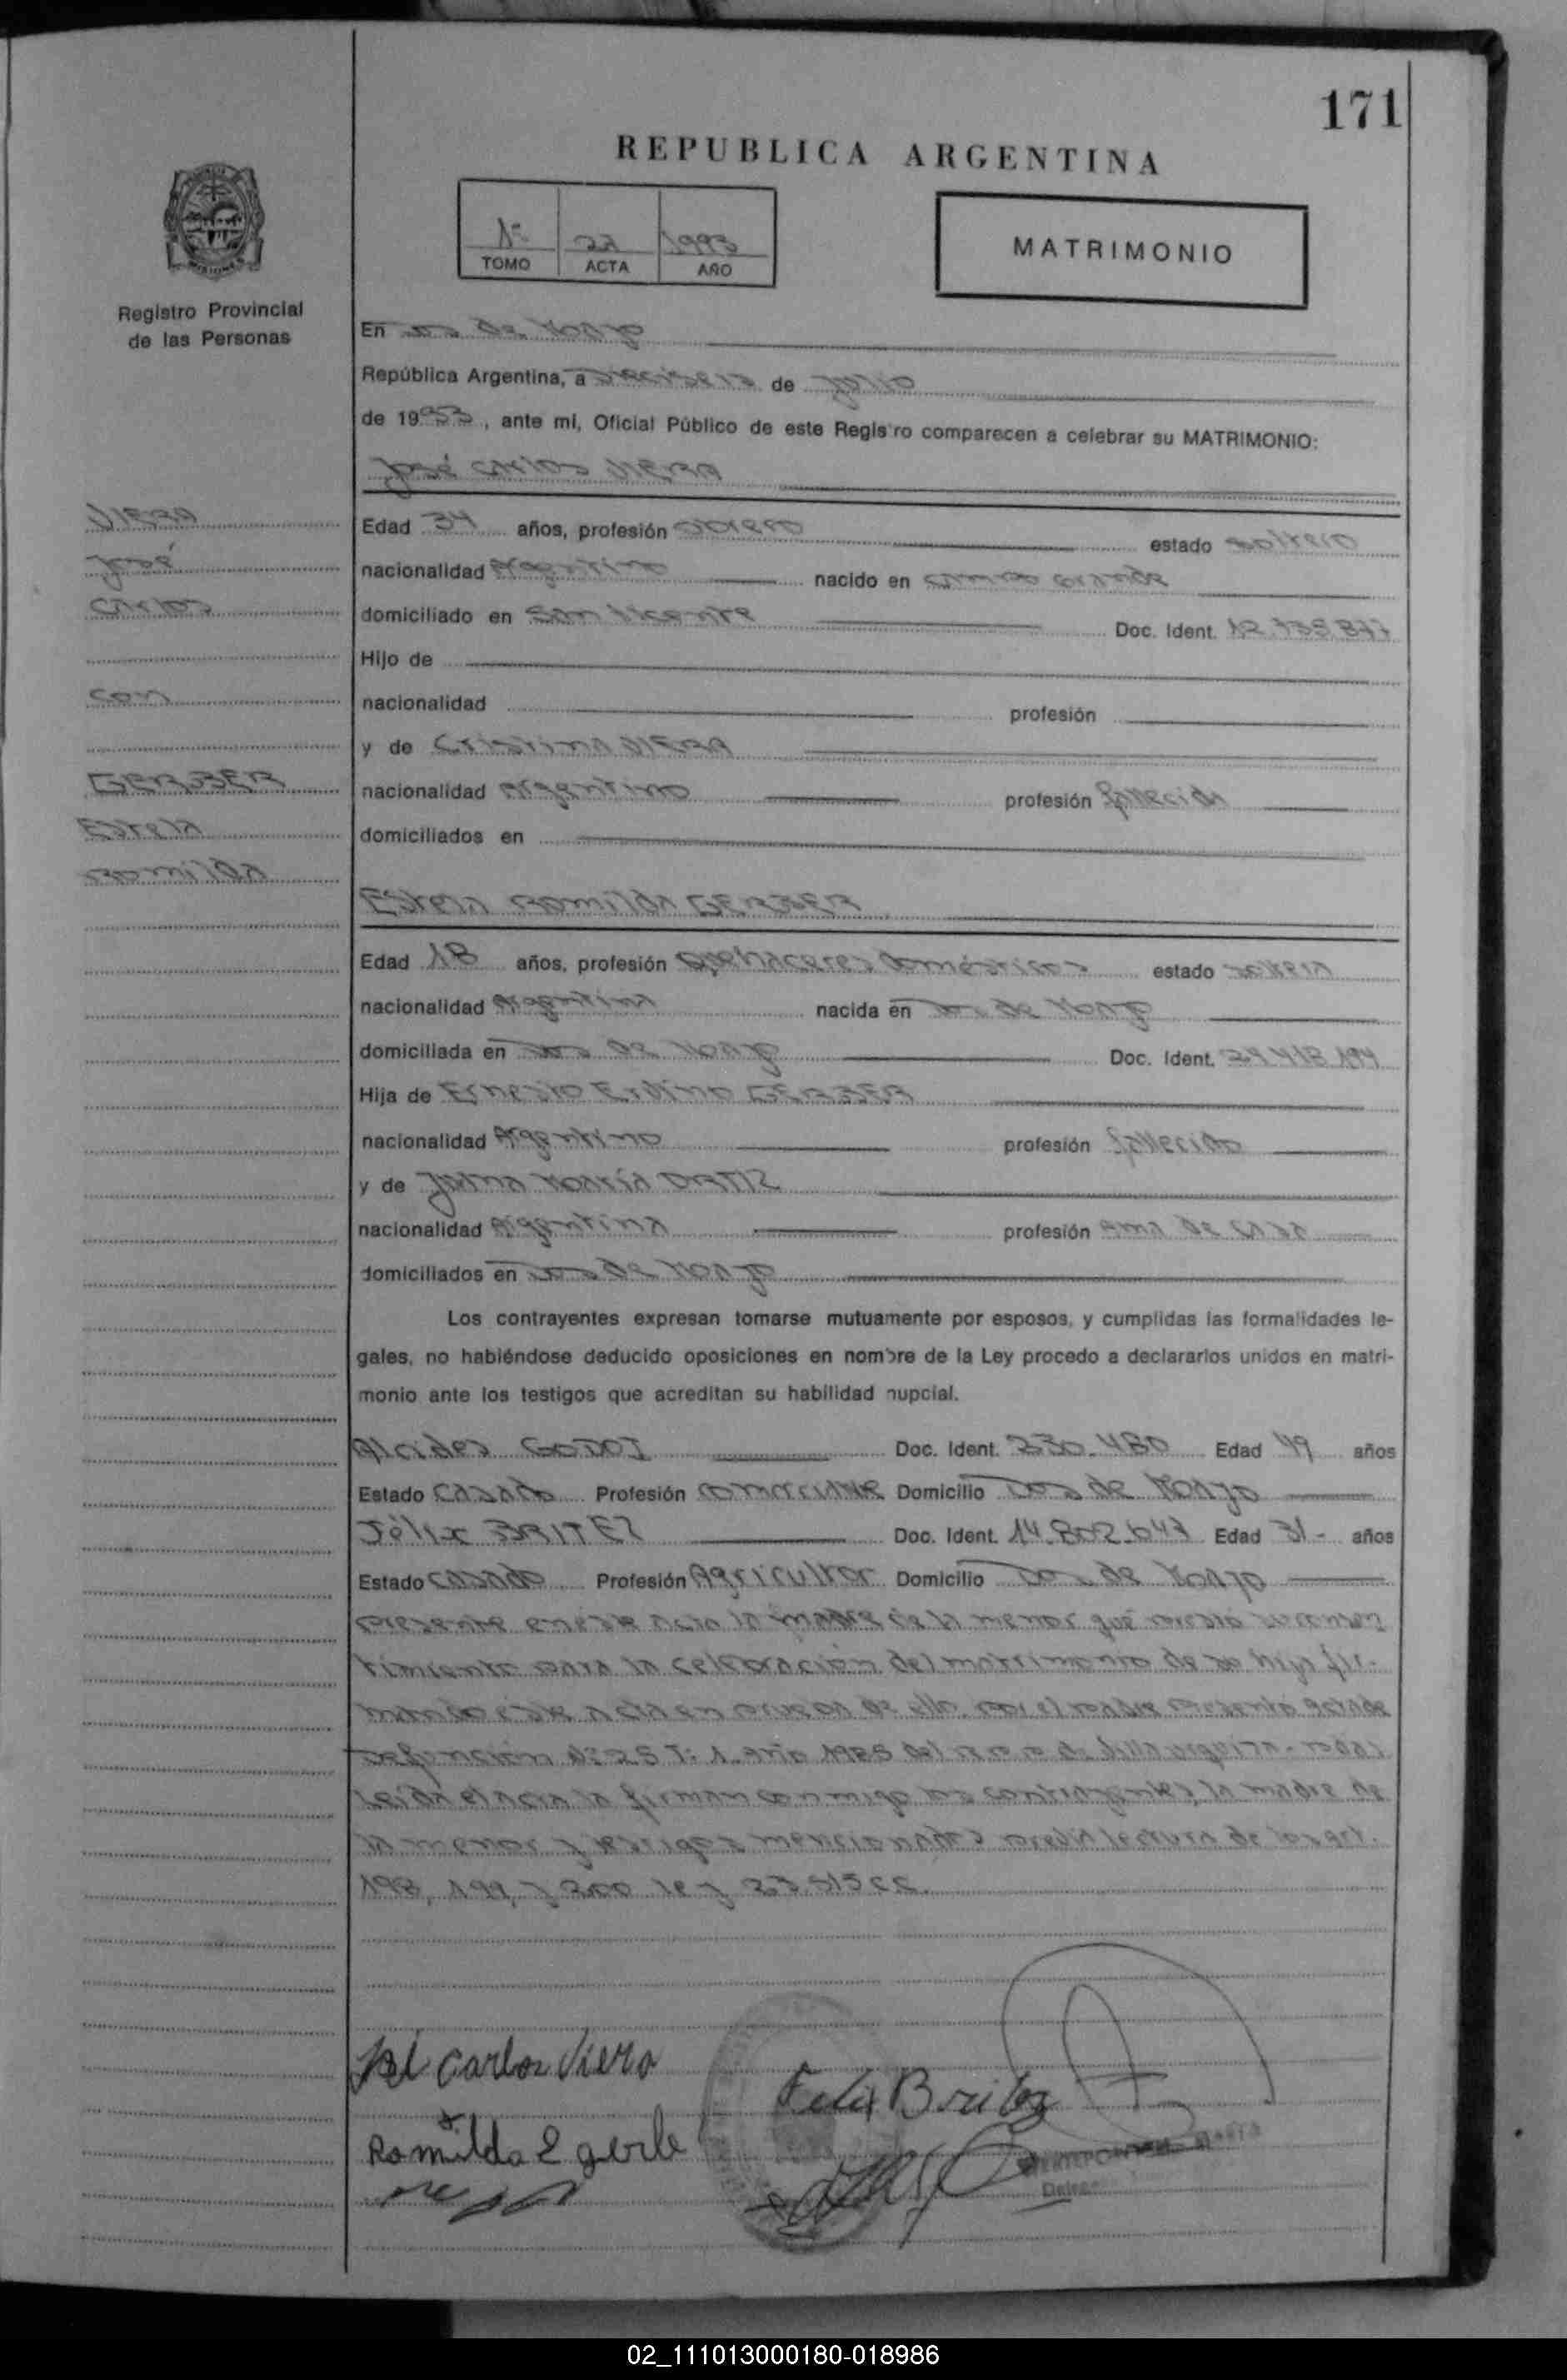 171
REPUBLICA ARGENTINA
1º 22 1993
TOMO ACTA AÑO
MATRIMONIO
MISIONES
Registro Provincial
de las Personas
En Dos de Mayo
República Argentina, a dieciseis de Julio
de 1993, ante mi, Oficial Público de este Registro comparecen a celebrar su MATRIMONIO:
José Carlos VIERA
VIERA
José
Carlos
con
GERBER
Estela
Romilda
Edad 34 años, profesión obrero estado soltero
nacionalidad Argentino nacido en Campo Grande
domiciliado en San Vicente Doc. Ident. 12.735.877
Hijo de
nacionalidad profesión
y de Cristina VIERA
nacionalidad Argentino profesión fallecida
domiciliados en
Estela Romilda GERBER
Edad 18 años, profesión Quehaceres domésticos estado soltera
nacionalidad Argentina nacida en Dos de Mayo
domiciliada en Dos de Mayo Doc. Ident.
Hija de Ernesto GERBER
nacionalidad Argentino profesión fallecido
y de María ORTIZ
nacionalidad Argentina profesión Ama de casa
domiciliados en Dos de Mayo
Los contrayentes expresan tomarse mutuamente por esposos, y cumplidas las formalidades le-
gales, no habiéndose deducido oposiciones en nombre de la Ley procedo a declararlos unidos en matri-
monio ante los testigos que acreditan su habilidad nupcial.
Alcides GODOI Doc. Ident. 230.480 Edad 49 años
Estado casado Profesión comerciante Domicilio Dos de Mayo
Félix BRITEZ Doc. Ident. 14.802.647 Edad 31- años
Estado casado Profesión Agricultor Domicilio Dos de Mayo
presente en este acto la madre de la menor que presta su consen
timiento para la celebración del matrimonio de su hija fir-
mando este acta en prueba de ello. por el padre presenta acta de
defunción Nº 25 T: 1 año 1985 del
Leida el acta la firman conmigo los contrayentes, la madre de
la menor y testigos mencionados previa lectura de los art.
198, 199, y 200 ley 23.515 CC.
José Carlos Viera
Felix Britez
Romilda E gerber
02_111013000180-018986